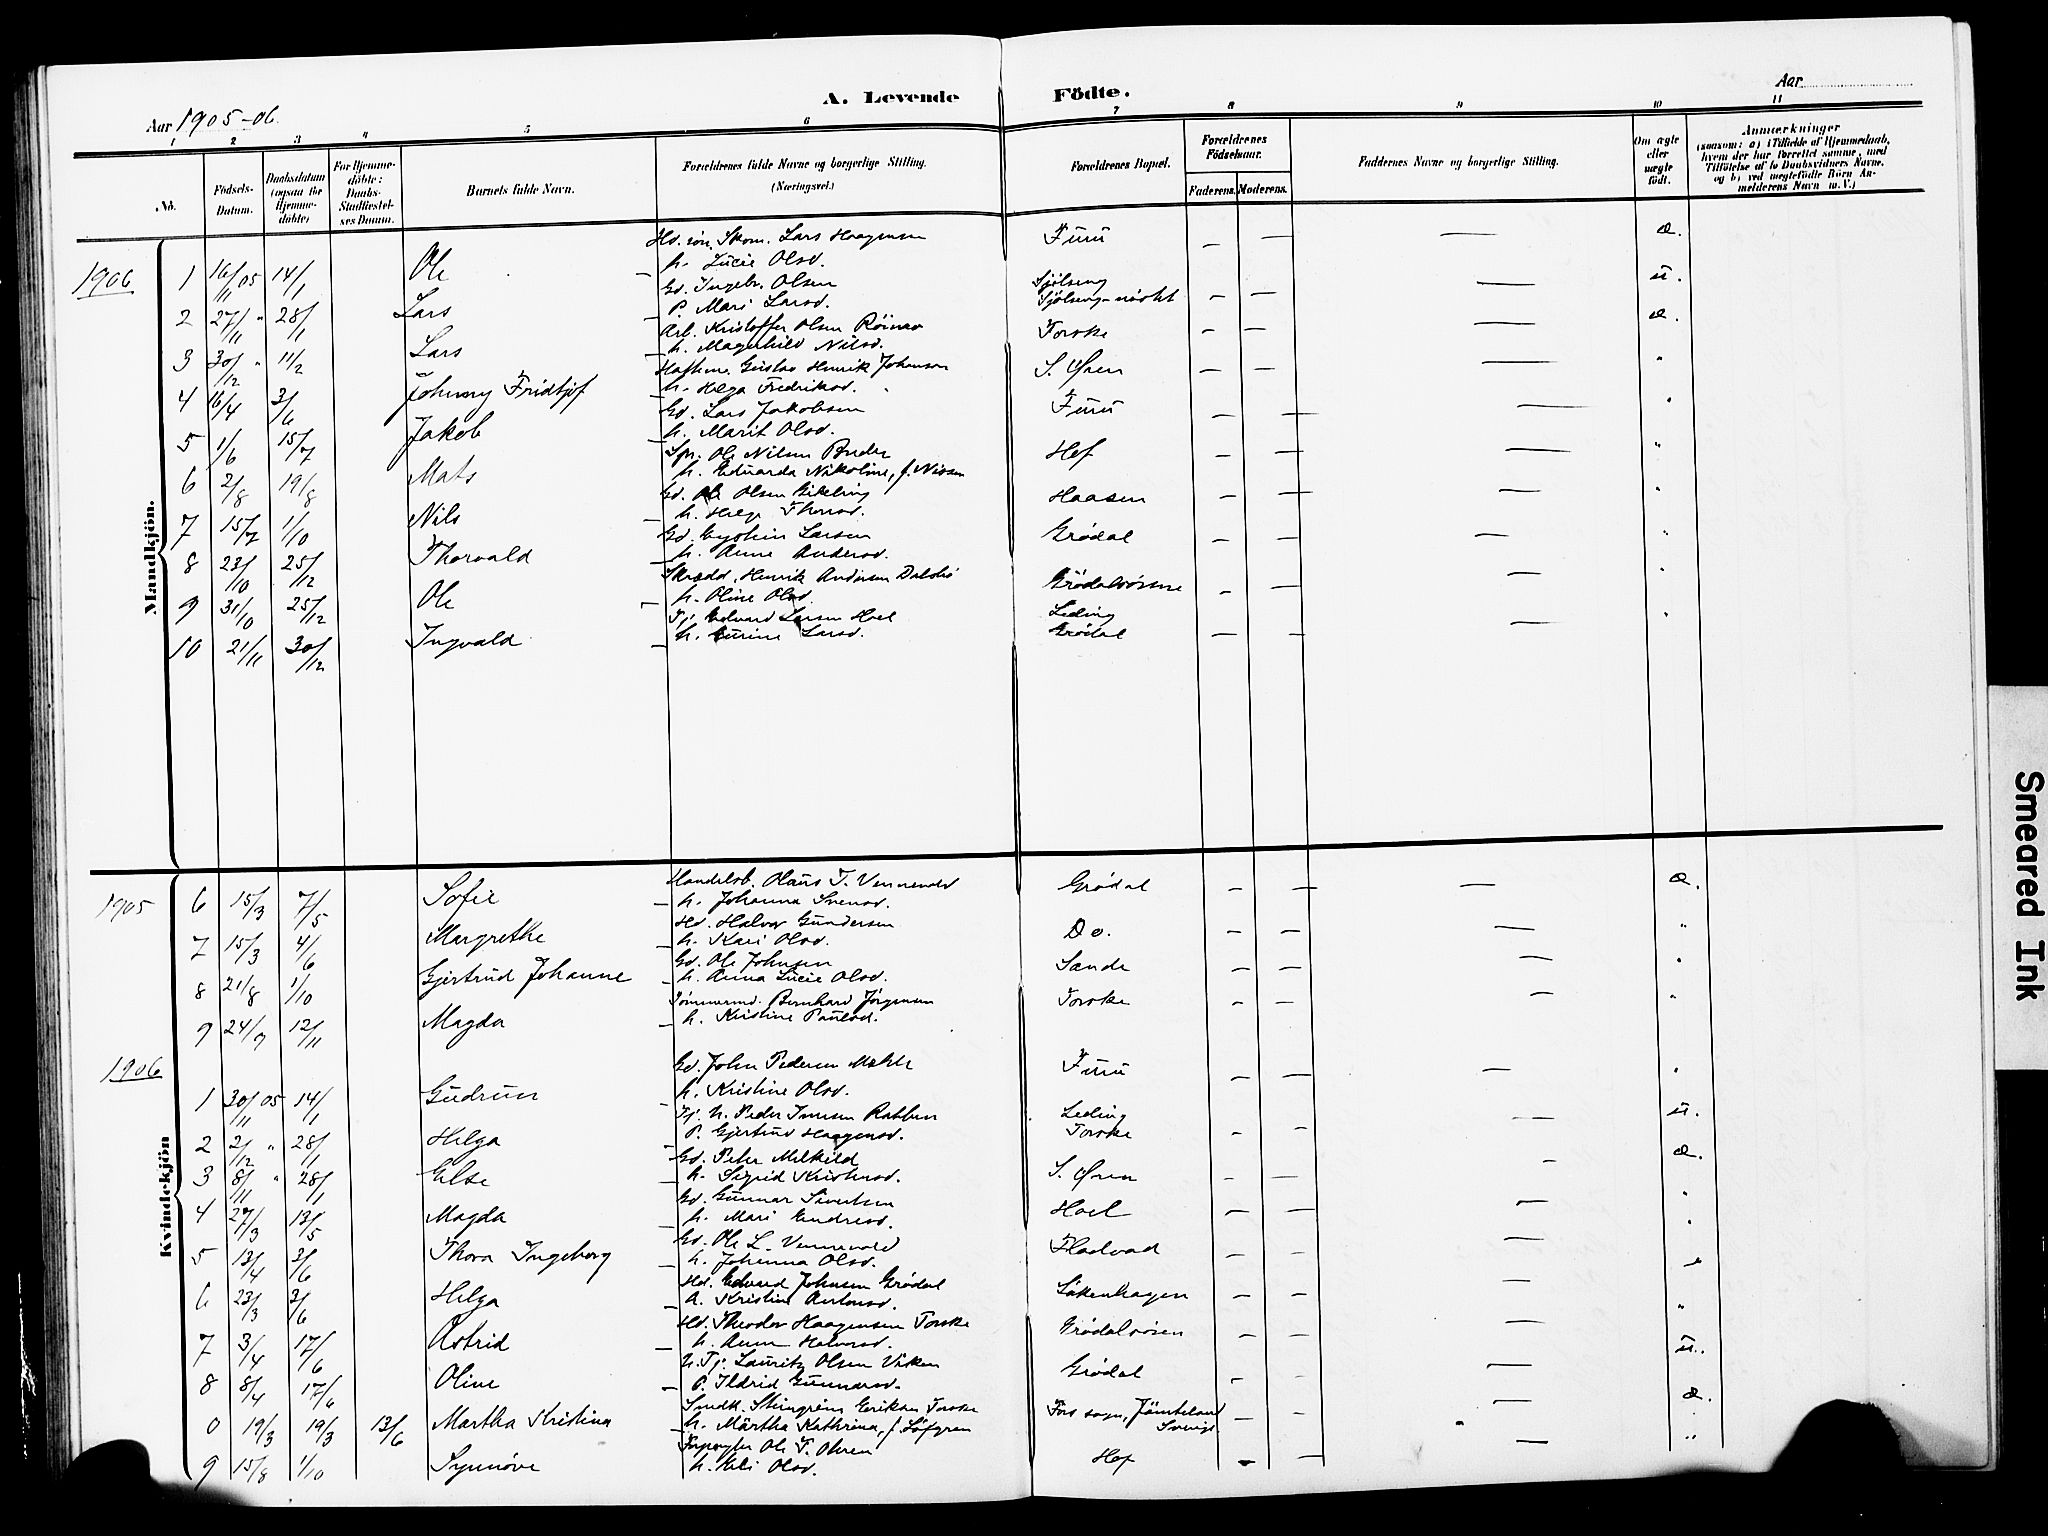 Aar 1905-06.
A. Levende Födte.
Aar
1 2 3 4 5 6 7 8 9 10 11
No.
Födsels-Datum.
Daabsdatum (ogsaa for Hjemme-döbte)
For Hjemme-döbte: Daabs-Stadfæstel-ses Datum.
Barnets fulde Navn.
Forældrenes fulde Navne og borgerlige Stilling. (Næringsvei.)
Forældrenes Bopæl.
Forældrenes Födselsaar.
Faderens. Moderens.
Faddernes Navne og borgerlige Stilling.
Om ægte eller uægte födt.
Anmærkninger
(saasom: a) i Tilfælde af Hjemmedaab,
hvem der har forrettet samme, med
Tilföielse af to Daabsvidners Navne,
og b) ved uægtefödte Börn An-
melderens Navn m. V.)
Mandkjön.
Hd. sön, Skom. Lars Haagensen Furu — — — æ.
1906 1 16/11 05 14/1 Ole — h. Lucie Olsd.
Gd. Ingebr. Olsen Sjölseng u.
2 27/11 " 28/1 Lars — P. Mari Larsd. Sjölseng-
Arb. Kristoffer Olsen Torske — — — æ.
3 30/12 " 11/2 Lars — h. Magnhild Nilsd.
Gustav Henrik Johansen S. Øren — — — "
4 16/4 3/6 Johnny Fridtjof — h. Helga Fredriksd.
Gd. Lars Jakobsen Furu — — — "
5 1/6 15/7 Jakob — h. Marit Olsd.
Ole Nilsen Hof — — — "
6 2/8 19/8 Mats h. Eduarda Nikoline, f. Nissen
Gd. Ole Olsen Gikling Haasen — — — "
7 15/7 1/10 Nils — h. Helga Thorsd.
Gd. Eystein Larsen Grødal — — — "
8 23/10 25/12 Thorvald — h. Anne Andersd.
Skrædd. Henrik Andersen Grödalsøren — — — "
9 31/10 25/12 Ole — h. Oline Olsd.
Tj. Edvard Larsen Hoel Leding "
10 21/11 30/12 Ingvald — h. Gurine Larsd. Grødal — — —
Kvindekjön
Handelsb. Claus T. Vennevold Grödal — — — æ.
1905 6 15/3 7/5 Sofie — h. Johanna Svensd.
Hd. Halvor Gundersen Do. — — — "
7 15/3 4/6 Margrethe — h. Kari Olsd.
Gd. Ole Johnsen Sande — — — "
8 21/8 1/10 Gjertrud Johanne — h. Anna Lucie Olsd.
Tömmermd. Bernhard Jørgensen Torske — — — "
9 24/9 12/11 Magda — h. Kristine Paulsd.
1906
Gd. John Pedersen Furu — — — "
1 30/11 05 14/1 Gudrun h. Kristine Olsd.
Tj. U. Peder Iversen Leding u.
2 2/12 " 28/1 Helga P. Gjertrud Haagensd. Torske — — —
Gd. Peter Melkild æ.
3 8/11 " 28/1 Else — h. Sigrid Kristensd. S. Øren — — —
Gd. Gunnar Sivertsen "
4 27/3 13/5 Magda — h. Mari Endresd. Hoel — — —
Gd. Ole L. Vennevold "
5 13/4 3/6 Thora Ingeborg — h. Johanna Olsd. Fladvad — — —
Hd. Edvard Johnsen Grødal "
6 23/3 3/6 Helga — h. Kristine Antonsd. Løkenhagen — — —
Hd. Theodor Haagensen Torske Grödalsøren — — — "
7 3/4 17/6 Astrid — h. Anne Halvorsd.
U. Tj. Lauritz Olsen Viken u.
8 8/4 17/6 Olive — P. Ildrid Gunnarsd. Grödal — — —
Smdk. Steingrim Eriksen Torske Fors sogn, Jämteland æ.
0 19/3 19/3 13/6 Martha Kristina — h. Märtha Kathrina, f. Löfgren Sverige — — —
Forpagter Ole T. Ohren "
9 15/8 1/10 Synnøve h. Eli Olsd. Hof — — —
Smeared Ink